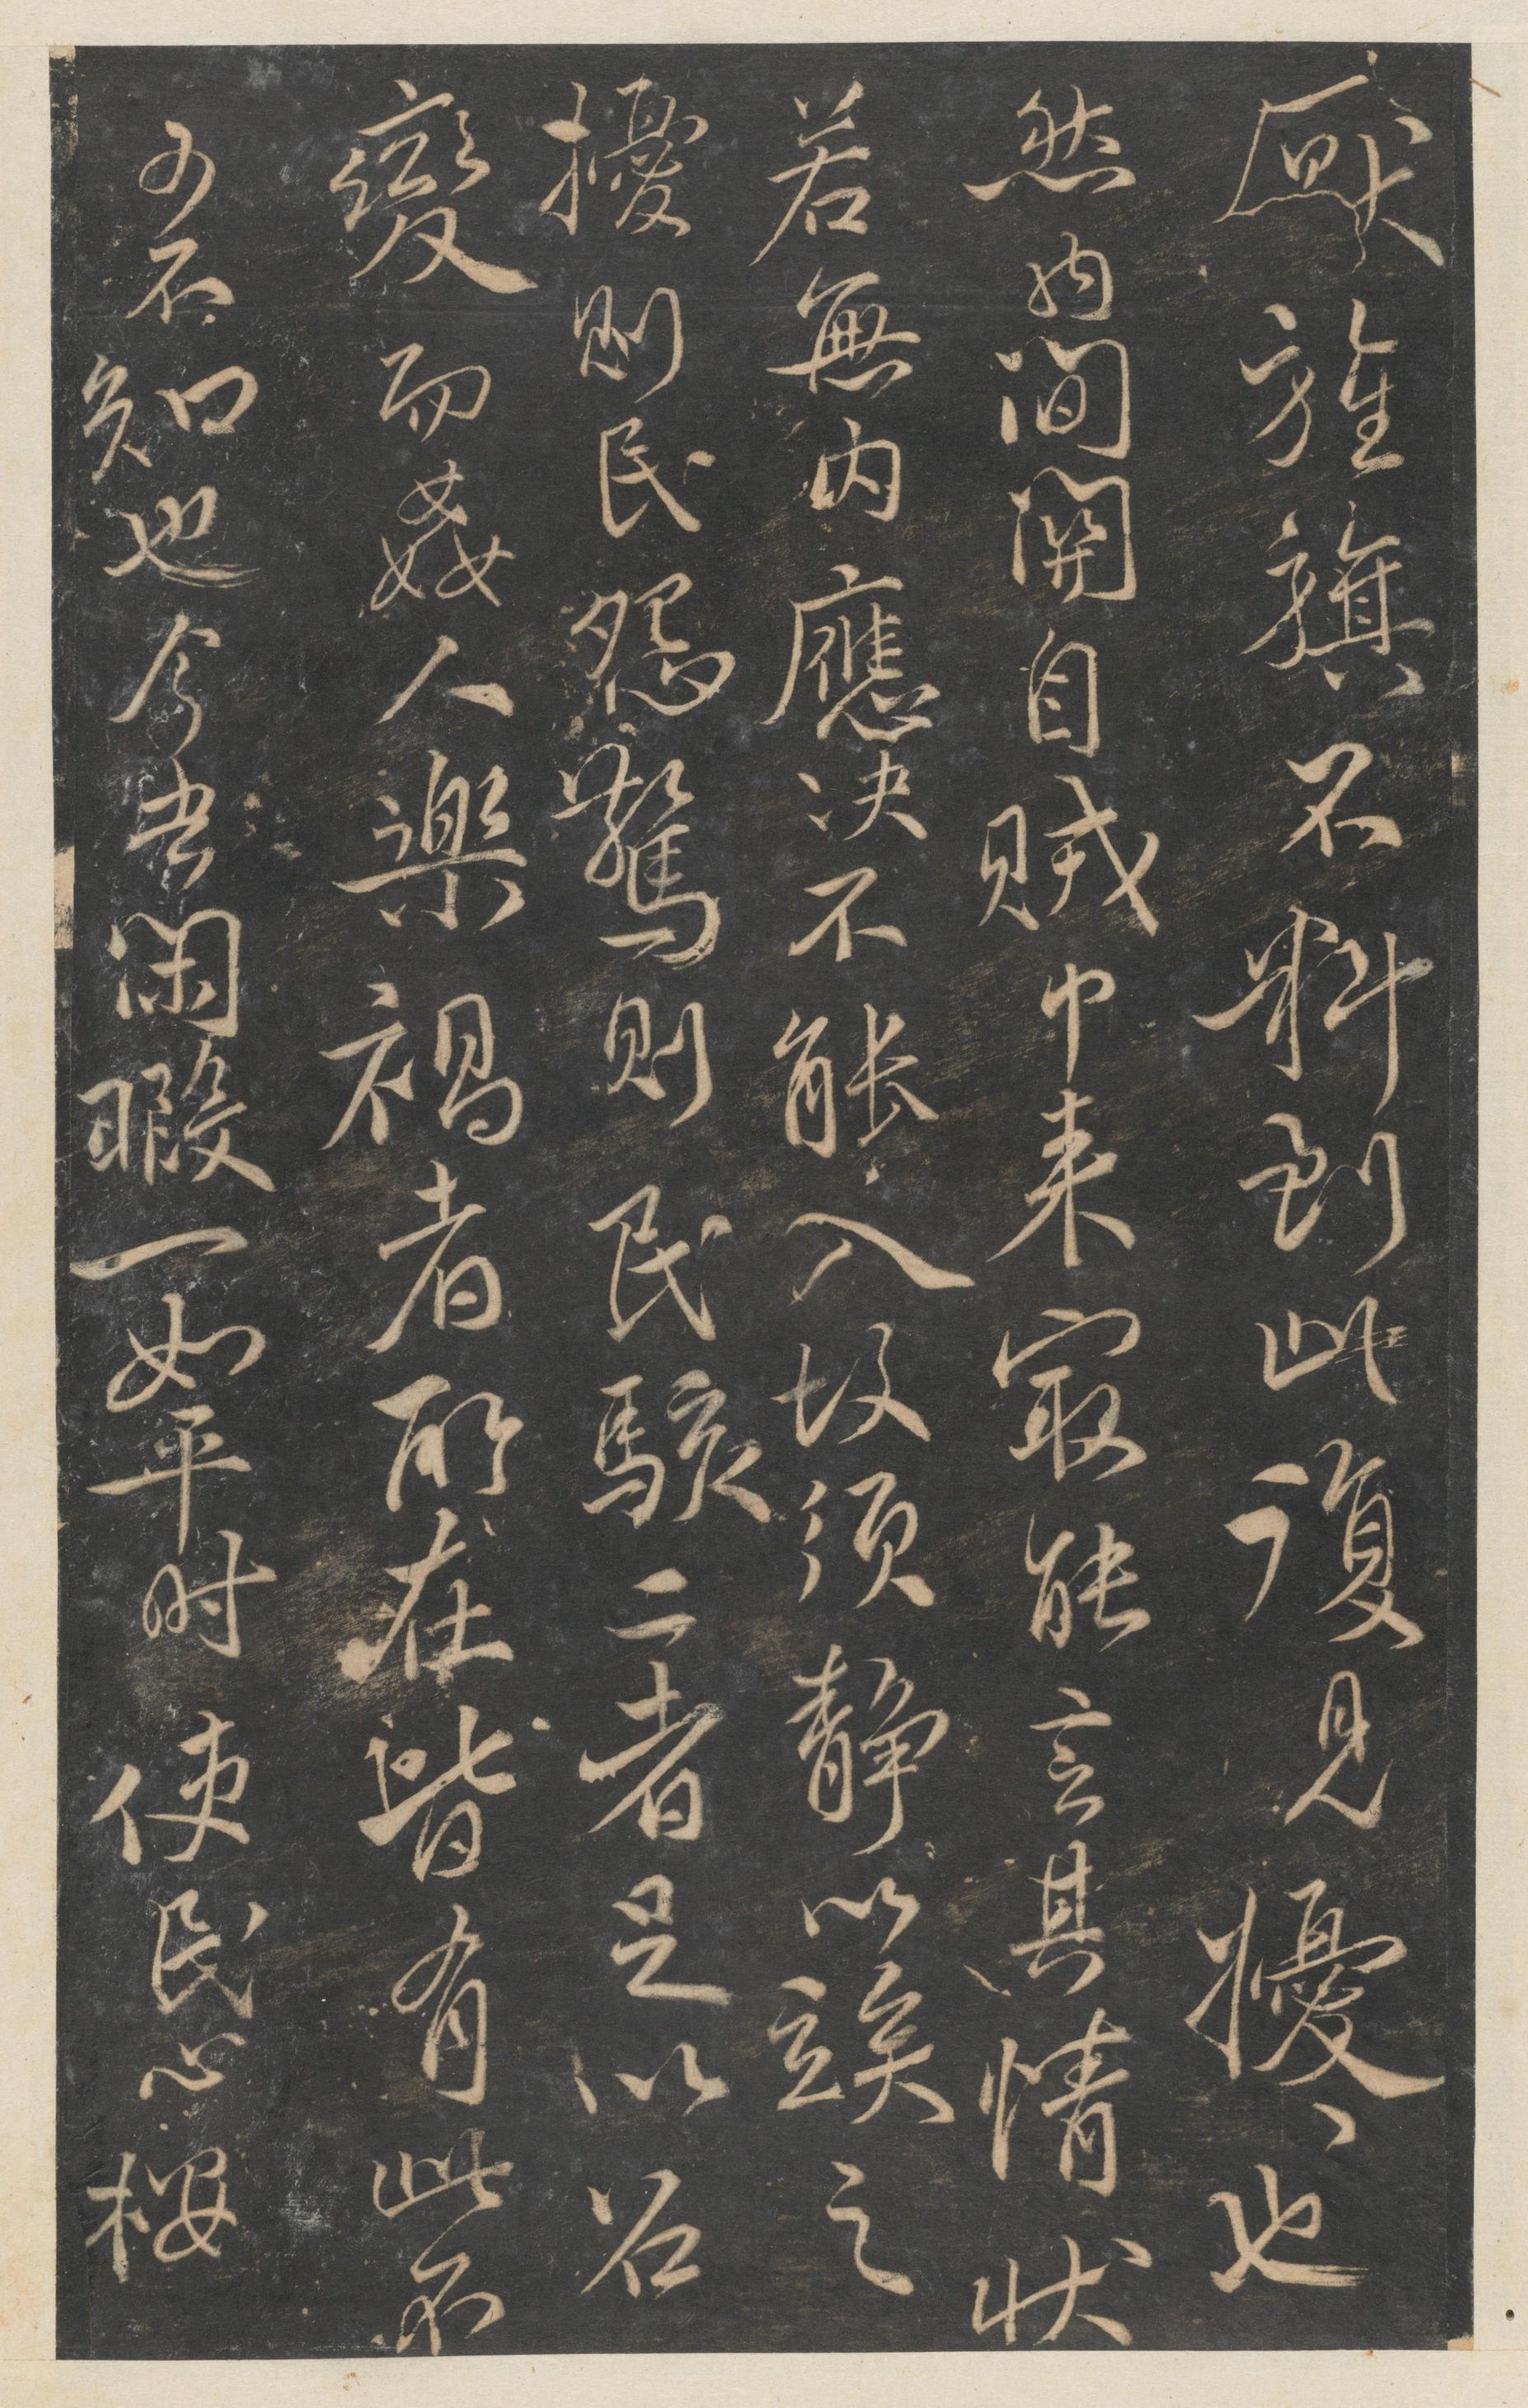 厭旌旗不料到此復見擾〻也
然內間開自賊中来㝡能言其情狀
若無內應决不能入城須靜以鎮之
擾則民怨驚則民駭二者足以召
變而姦人樂禍者所在皆有此不
可不知也今書閑暇一如平时使民心